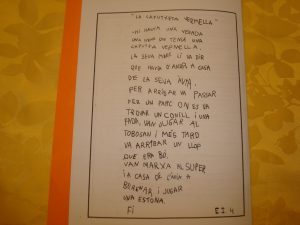 "LA CAPUTXETA VERMELLA"
-HI HAVIA UNA VEGADA
UNA NENA QUE TENIA UNA
CAPUTXA VERMELLA.
LA SEVA MARE LI VA DIR
QUE HAVIA D'ANAR A CASA
DE LA SEVA ÀVIA.
PER ARRIBAR VA PASSAR
PER UN PARC ON ES VA
TROVAR UN CONILL I UNA
FADA. VAN JUGAR AL
TOBOGAN I MÉS TARD
VA ARRIBAR UN LLOP
QUE ERA BO.
VAN MARXA AL SUPER
I A CASA DE L'AVIA A
BERENAR I JUGAR
UNA ESTONA.
FI
E.I. 4